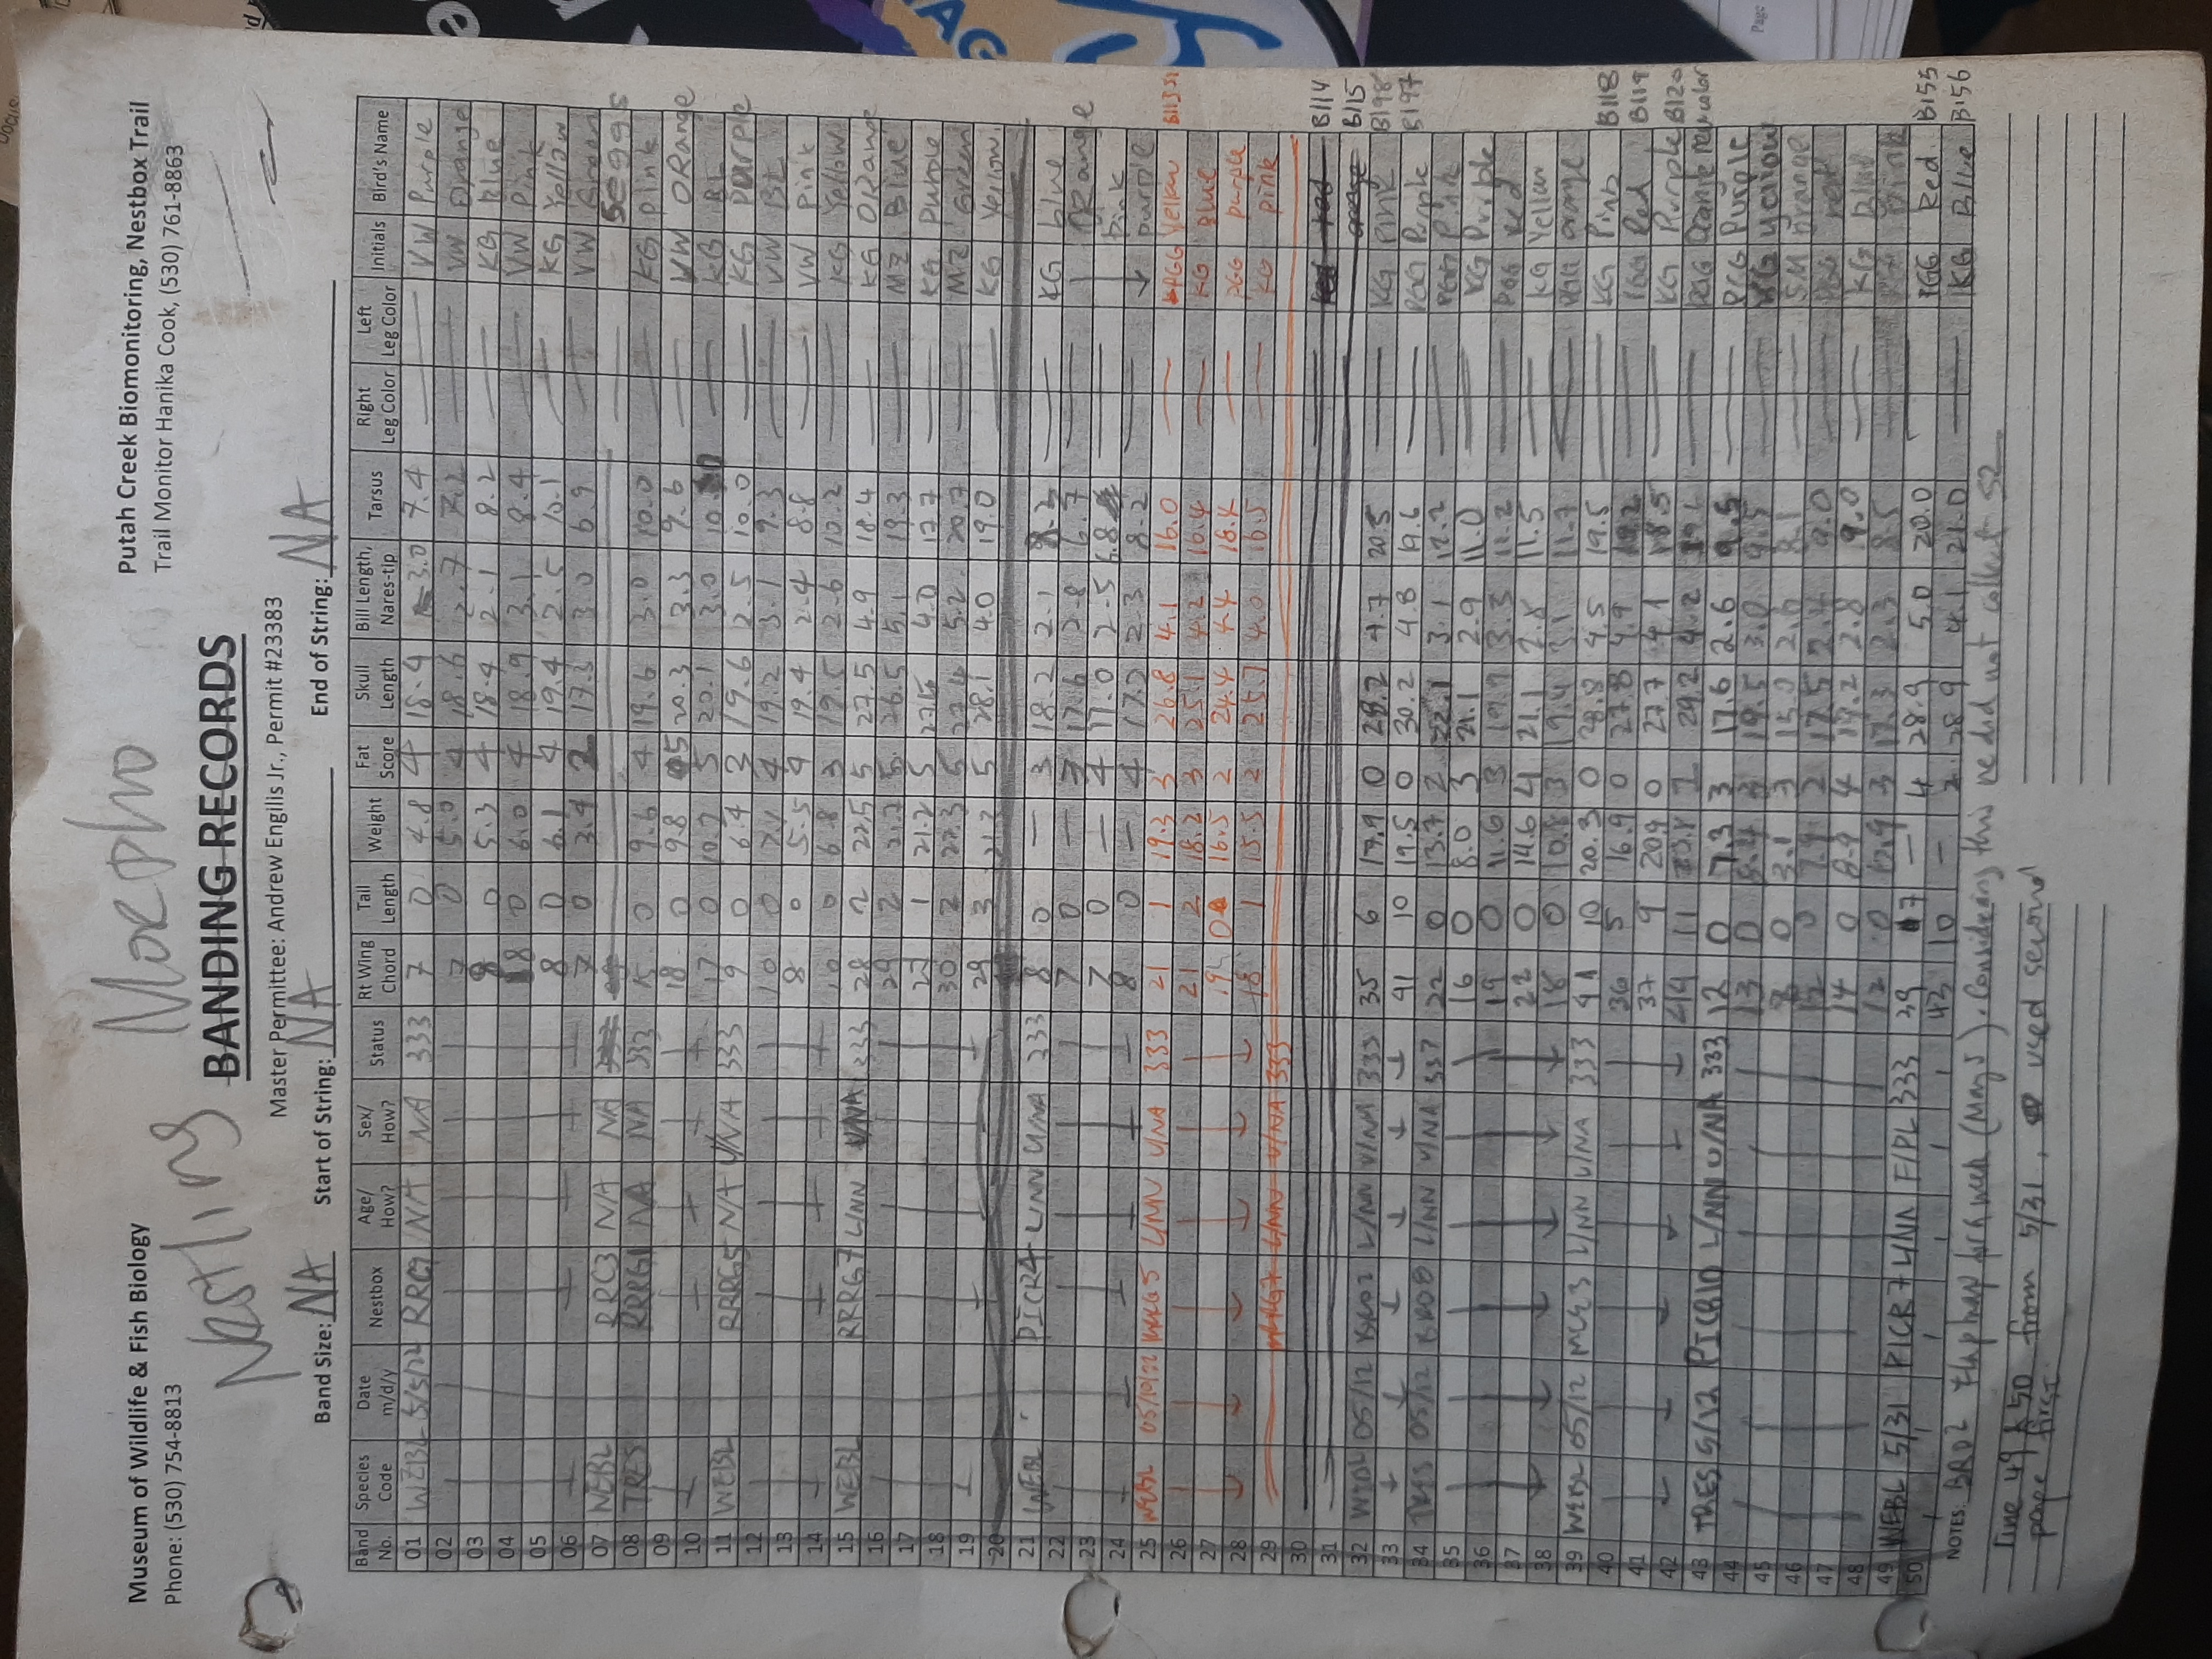 Nestling Morpho
Museum of Wildlife & Fish Biology
Phone: (530) 754-8813
Putah Creek Biomonitoring, Nestbox Trail
Trail Monitor Hanika Cook, (530) 761-8863
BANDING RECORDS
Master Permittee: Andrew Engilis Jr., Permit #23383
Band Size: NA Start of String: NA End of String: NA
Band No. Species Code Date m/d/y Nestbox Age/ How? Sex/ How? Status Rt Wing Chord Tail Length Weight Fat Score Skull Length Bill Length, Nares-tip Tarsus Right Leg Color Left Leg Color Initials Bird's Name
01 WEBL 5/5/22 RRC9 NA NA 333 7 0 4.8 4 18.4 3.0 7.4 VW Purple
02 7 0 5.0 4 18.6 2.7 7.2 VW Orange
03 8 0 5.3 4 18.4 2.1 8.2 KG Blue
04 8 0 6.0 4 18.9 3.1 8.4 VW Pink
05 8 0 6.1 4 19.4 2.5 10.1 KG Yellow
06 7 0 3.4 2 17.3 3.0 6.9 VW Green
07 WEBL RRC3 NA NA 5 eggs
08 TRES RRRG1 NA NA 333 15 0 9.6 4 19.6 3.0 10.0 KG pink
09 18 0 9.8 5 20.3 3.3 9.6 VW ORange
10 17 0 10.2 5 20.1 3.0 KG BL
11 WEBL RRRG5 NA U/NA 333 9 0 6.4 3 19.6 2.5 10.0 KG purple
12 10 0 7.1 4 19.2 3.1 9.3 VW BL
13 8 0 5.5 4 19.4 2.4 8.8 VW pink
14 10 0 6.8 3 19.5 2.6 10.2 KG Yellow
15 WEBL RRRG7 L/NN U/NA 333 28 2 22.5 5 27.5 4.9 18.4 KG ORange
16 29 2 21.7 5 26.5 5.1 19.3 MZ Blue
17 27 1 21.2 5 4.0 17.7 KG purple
18 30 2 22.3 5 27.4 5.2 20.7 MZ Green
19 29 3 21.3 5 28.1 4.0 19.0 KG Yellow
20
21 WEBL PICR4 L/NN U/NA 333 8 0 — 3 18.2 2.1 KG blue
22 7 0 — 3 17.6 2.8 6.7 ORange
23 7 0 — 4 17.0 2.5 6.8 pink
24 8 0 — 4 2.3 8.2 purple
25 WEBL 05/10/22 RRRG5 L/NN U/NA 333 21 1 19.3 3 26.8 4.1 16.0 PGG Yellow
26 21 2 18.2 3 25.1 4.2 16.4 KG Blue
27 19 0 16.5 2 24.4 4.4 18.4 PGG purple
28 18 1 15.5 2 25.7 4.0 16.5 KG pink
29 RRRG7 L/NN U/NA 333
30 red B114
31 orange B115
32 WEBL 05/12 BRO2 L/NN U/NA 333 35 6 17.9 0 28.2 4.7 20.5 KG Pink B198
33 41 10 19.5 0 30.2 4.8 19.6 PGG Purple B197
34 TRES 05/12 BRO8 L/NN U/NA 337 22 0 13.7 2 22.1 3.1 12.2 PGG Pink
35 16 0 8.0 3 21.1 2.9 11.0 KG Purple
36 19 0 11.6 3 19.9 3.3 11.2 PGG Red
37 22 0 14.6 4 21.1 2.8 11.5 KG Yellow
38 18 0 10.8 3 19.4 3.1 11.7 PGG orange
39 WEBL 05/12 MCE3 L/NN U/NA 333 41 10 20.3 0 28.8 4.5 19.5 KG Pink B118
40 36 5 16.9 0 27.8 4.9 19.2 PGG Red B119
41 37 9 20.9 0 27.7 4.1 18.5 KG Purple B120
42 44 11 29.2 4.2 19.6 PGG Orange new color
43 TRES 5/12 PICR10 L/NN U/NA 333 12 0 7.3 3 17.6 2.6 9.5 PGG Purple
44 13 0 3 19.5 3.0 9.5 KG yellow
45 8 0 3.1 3 15.0 2.6 8.1 SM orange
46 12 0 7.9 2 17.5 2.4 9.0 PGG red
47 14 0 8.9 4 19.2 2.8 9.0 KG Blue
48 12 0 3 17.3 2.3 8.5 Pink
49 WEBL 5/31 PICR7 L/NN F/PL 333 39 7 — 4 28.9 5.0 20.0 PGG Red B155
50 43 10 — 2 28.9 4.1 21.0 KG Blue B156
NOTES: BRO2 for a week (May 5). Considering this we did not collect S2
Line 49 & 50 from 5/31, used second
page first.